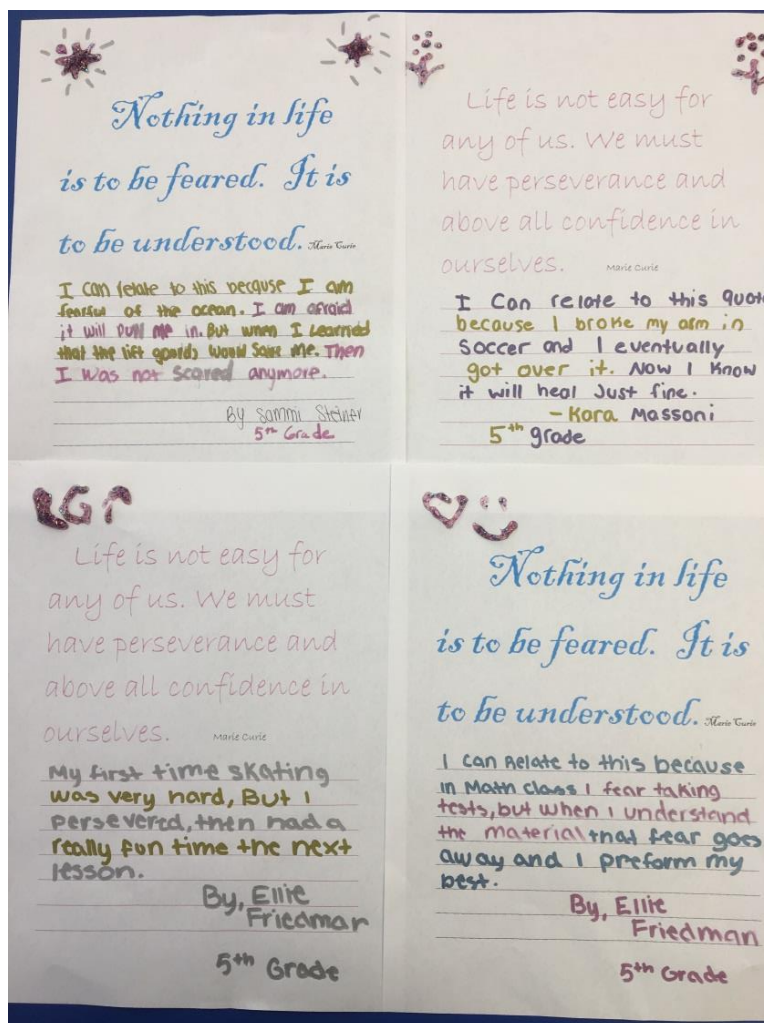 Nothing in life
is to be feared. It is
to be understood. Marie Curie
I can relate to this because I am
fearful of the ocean. I am afraid
it will pull me in. But when I Learned
that the lift goards would save me. Then
I was not scared anymore.
By Sammi Steiner
5th Grade
Life is not easy for
any of us. We must
have perseverance and
above all confidence in
ourselves. Marie Curie
I Can relate to this quote
because I broke my arm in
soccer and I eventually
got over it. Now I Know
it will heal Just fine.
- Kora Massoni
5th grade
Life is not easy for
any of us. We must
have perseverance and
above all confidence in
ourselves. Marie Curie
My first time skating
was very hard, But I
persevered, then had a
really fun time the next
lesson.
By, Ellie
Friedman
5th Grade
Nothing in life
is to be feared. It is
to be understood. Marie Curie
I can Relate to this because
in Math class I fear taking
tests, but when I understand
the material that fear goes
away and I preform my
best.
By, Ellie
Friedman
5th Grade